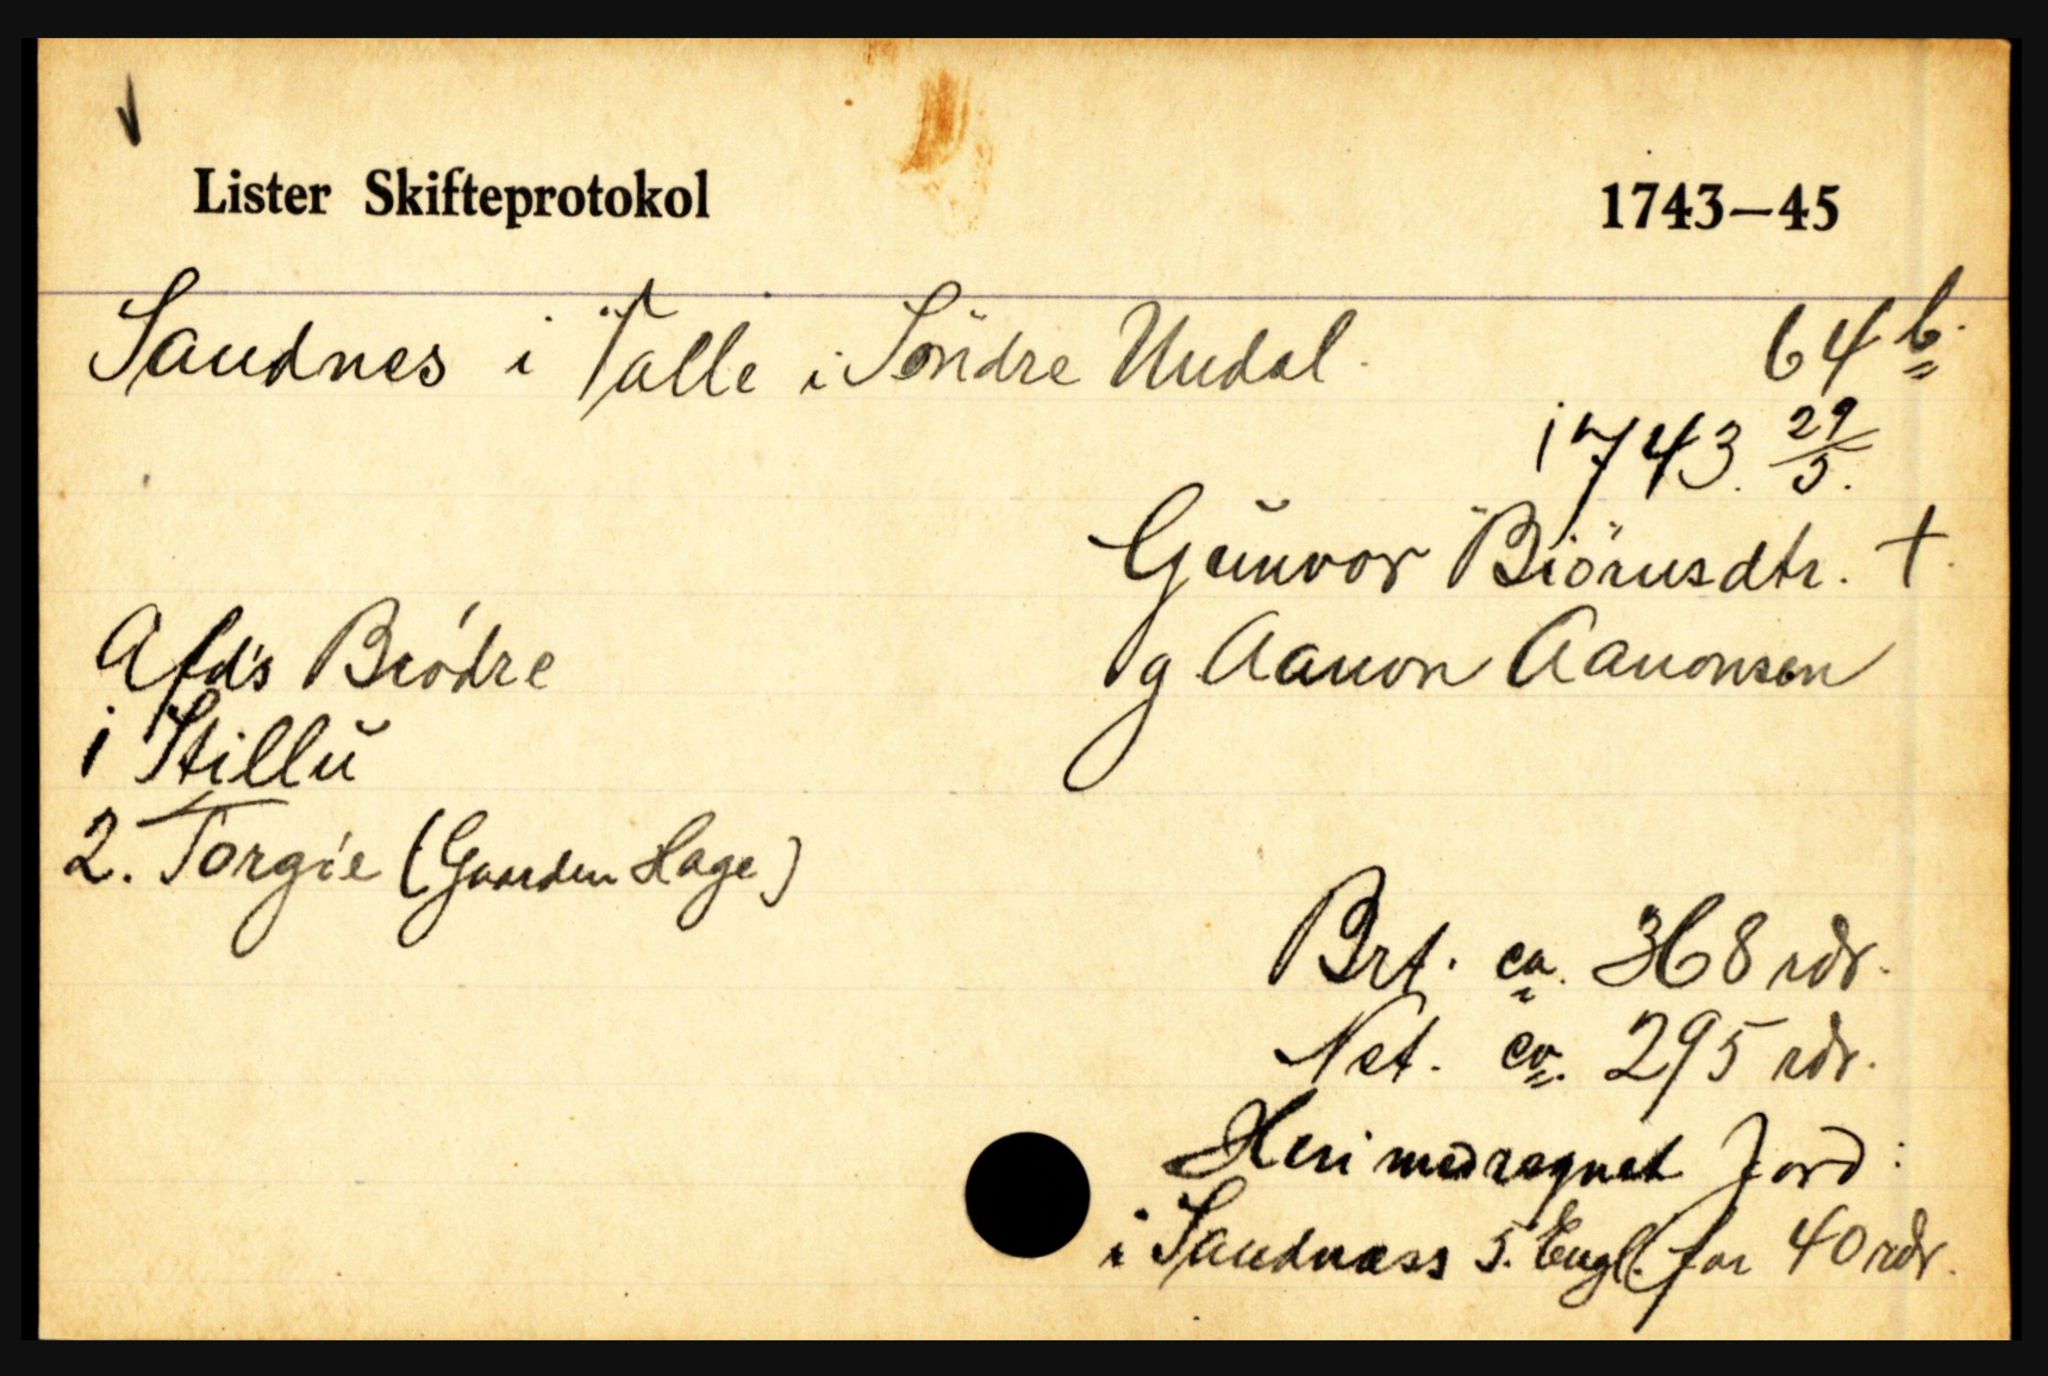 Lister Skifteprotokol 1743–45
Sandnes i Valle i Söndre Undal. 64 b.
1743. 29/5.
Gŭnvor Biörnsdtr. +.
g. Aanon Aanonsen
Afd's Brödre
1 Stillŭ
2. Torgie (Gaarden Hage)
Brt. ca. 368 rdr.
Net. ca. 295 rdr.
Heri medregnet Jord:
i Sandnæss 5. Engl. for 40 rdr.